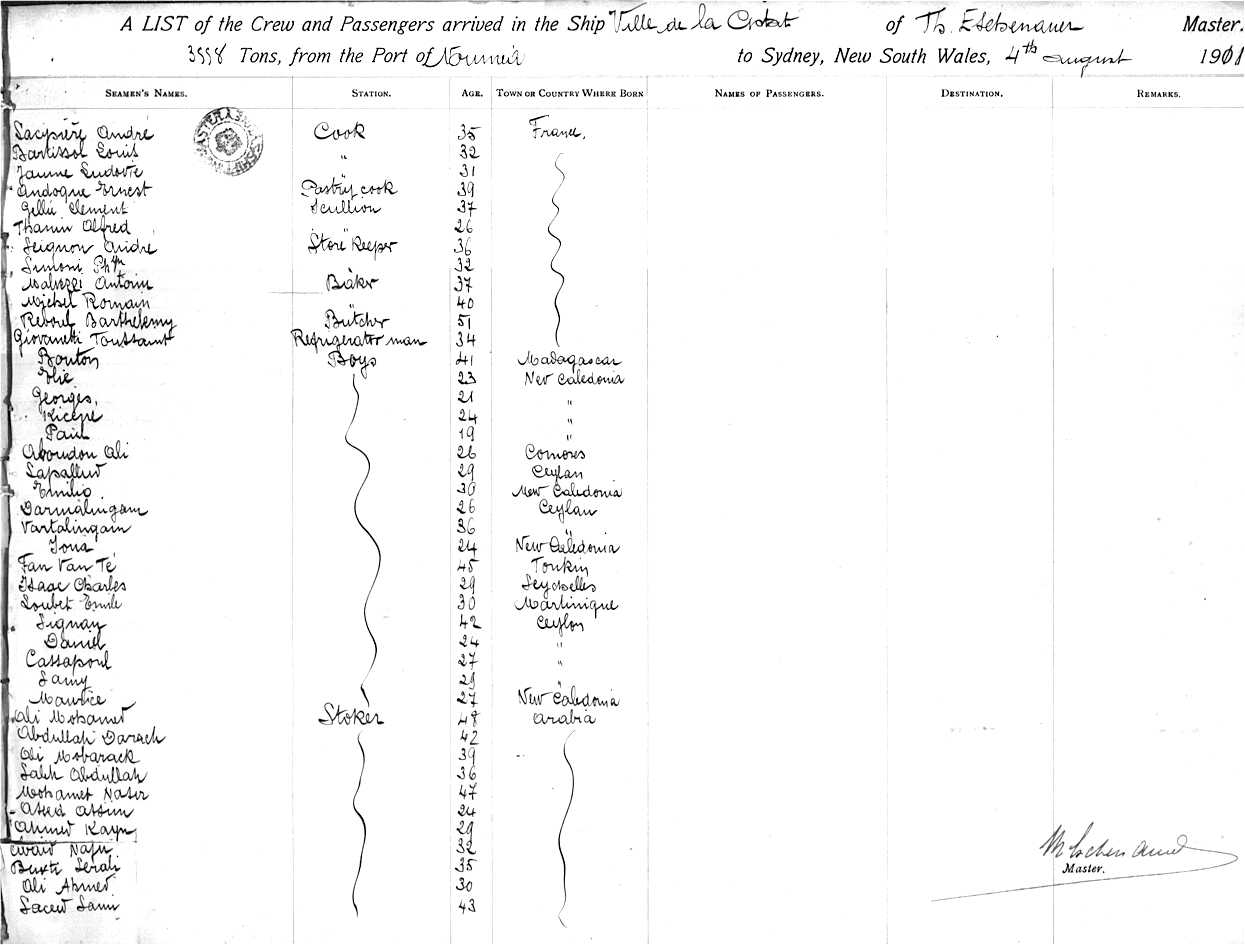 A LIST of the Crew and Passengers arrived in the Ship Ville de la Ciotat of Th. Master.
3558 Tons, from the Port of Noumea to Sydney, New South Wales, 4th august 1901
SEAMEN'S NAMES. STATION. AGE. TOWN OR COUNTRY WHERE BORN NAMES OF PASSENGERS. DESTINATION. REMARKS.
André Cook 35 France.
Louis " 32
Jaume 31
Andoque Ernest Pastry cook 39
Clement Scullion 37
Thanin Alfred " 26
Seignon Andre Store Keeper 36
Simoni 32
Antoine Baker 37
Michel Romain " 40
Reboul Barthelemy Butcher 51
Giovanetti Toussaint Refrigerator man 34
Bouton Boys 41 Madagascar
Elie 23 New Caledonia
Georges. 21 "
Kicepe 24 "
Paul 19 "
Aboudou Ali 26 Comores
29 Ceylan
Emilio. 30 New Caledonia
Darmalingam 26 Ceylan
Vartalingam 36 "
Iona 24 New Caledonia
Fan Van Té 45 Tonkin
Isaac Charles 29 Seychelles
Loubet Emile 30 Martinique
Signay 42 Ceylon
Daniel 24 "
Cassapoul 27 "
Samy 29 "
Maurice 27 New Caledonia
Ali Mohamet Stoker 48 Arabia
Abdullah Darach 42
Ali Mobarack 39
Saleh Abdullah 36
Mohamet Naser 47
24
Ahmed 29
32
35
Ali Ahmed 30
43
Master.